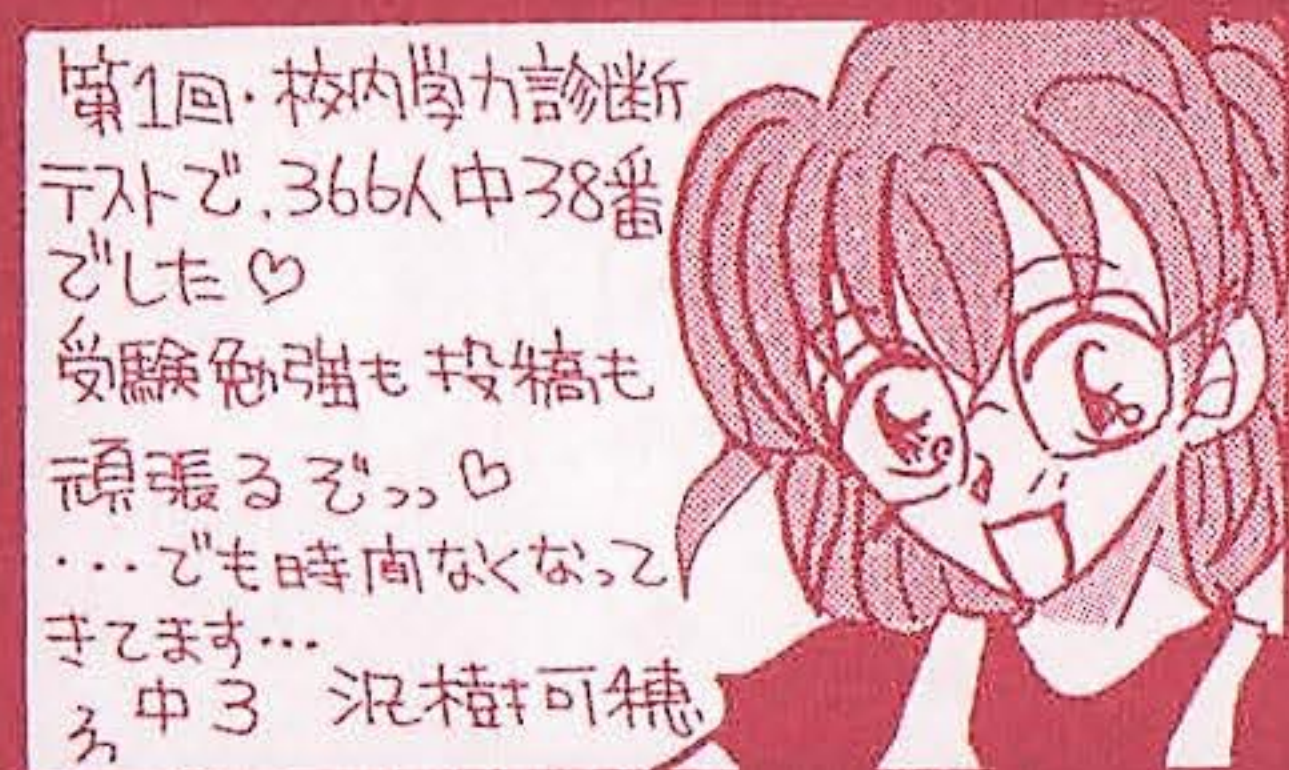 第1回・校内学力診断
テストで、366人中38番
でした♡
受験勉強も投稿も
頑張るぞっっ♡
・・・でも時間なくなって
きてます・・・
中3 沢樹可穂